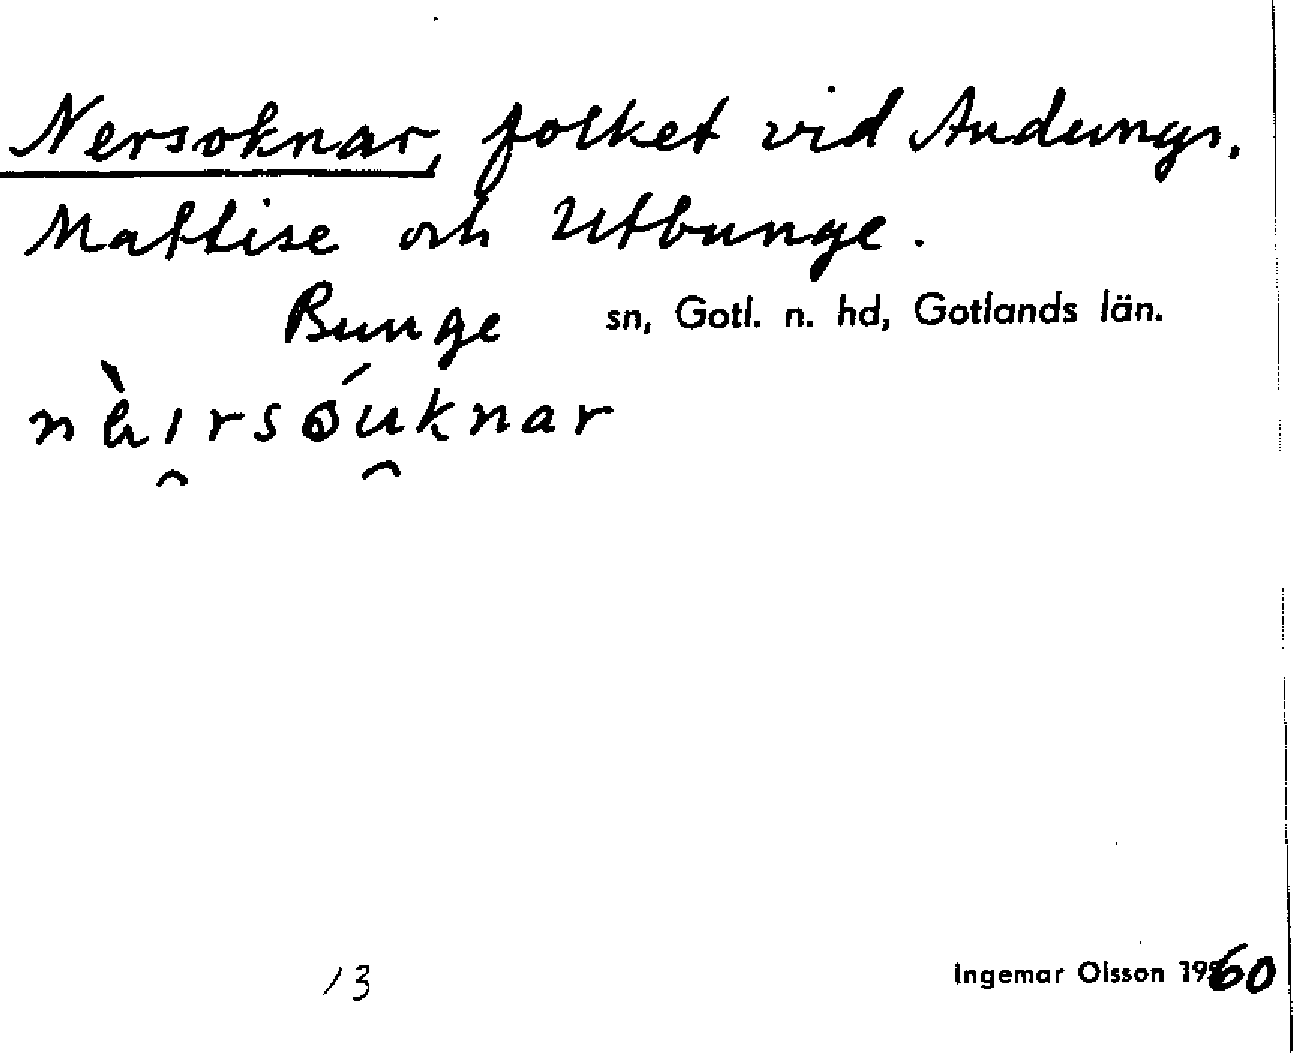 Nersoknar, folket vid Andungs,
Mattise och Utbunge.
Bunge sn, Gotl. n. hd, Gotlands län.
13
Ingemar Olsson 1960